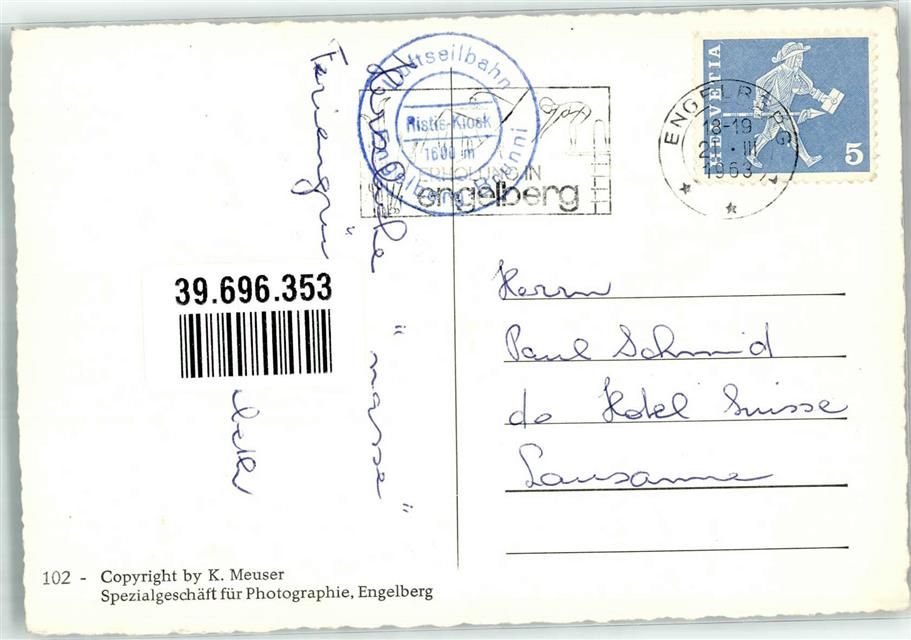 Luftseilbahn
Ristis-Kiosk
1600 m
Engelberg-Brunni
ERHOLUNG IN
engelberg
ENGELBERG
18-19
III
1963
HELVETIA
5
Herzliche " nasse "
39.696.353
Herrn
Paul Schmid
do Hotel Suisse
Lausanne
102 - Copyright by K. Meuser
Spezialgeschäft für Photographie, Engelberg